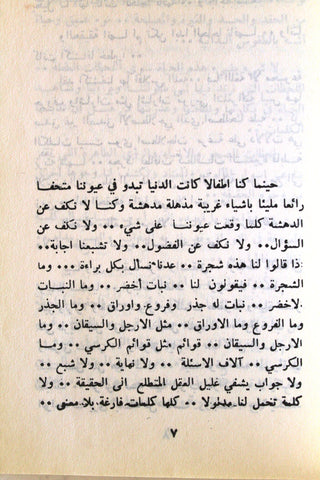 حينما كنا اطفالا كانت الدنيا تبدو في عيوننا متحفا
رائعا مليئا بأشياء غريبة مذهلة مدهشة وكنا لا نكف عن
الدهشة كلما وقعت عيوننا على شيء •• ولا نكف عن
السؤال •• ولا نكف عن الفضول •• ولا تشبعنا اجابة ••
ذا قالوا لنا هذه شجرة •• عدنا نسأل بكل براءة ••• وما
الشجرة •• فيقولون لنا •• نبات أخضر •• وما النبات
لاخضر •• نبات له جذر وفروع واوراق •• وما الجذر
وما الفروع وما الاوراق •• مثل الارجل والسيقان •• وما
الارجل والسيقان •• قوائم مثل قوائم الكرسي •• وما
الكرسي •• آلاف الاسئلة •• ولا نهاية •• ولا شبع ••
ولا جواب يشفي غليل العقل المتطلع الى الحقيقة •• ولا
كلمة تحمل لنا مدلولا •• كلها كلمات فارغة بلا معنى ••
٧